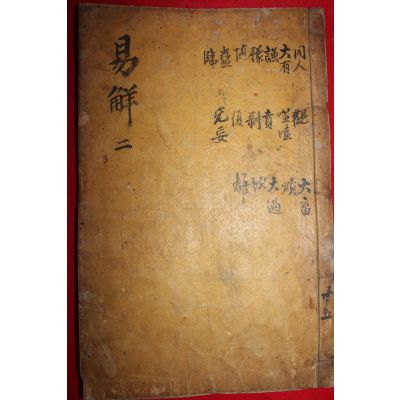 易觧 二
同人
大有
謙
豫
隨
蠱
臨
觀
噬嗑
賁
剝
復
无妄
大畜
頤
大過
坎
離